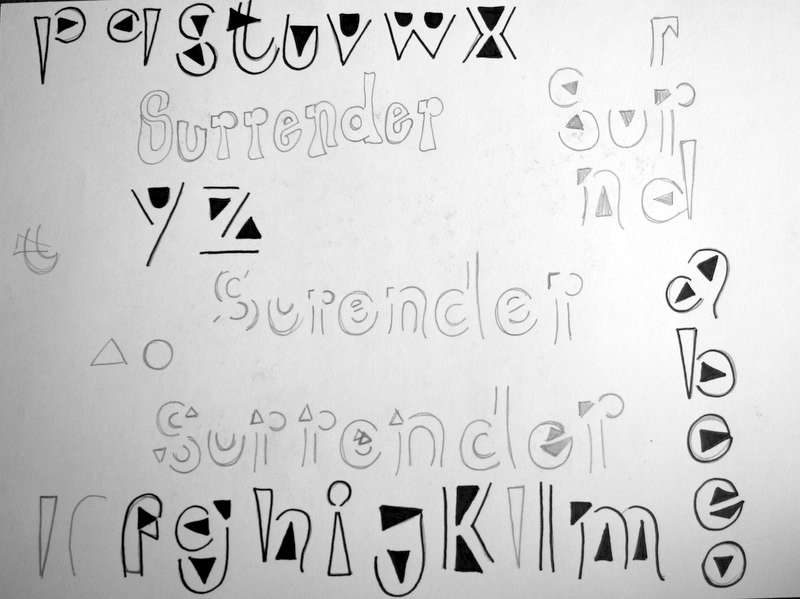 p q s t u v w x
r
Surrender
Sur
nd
y z
t
Surender
Surrender
f g h i j k l m
a
b
c
e
o